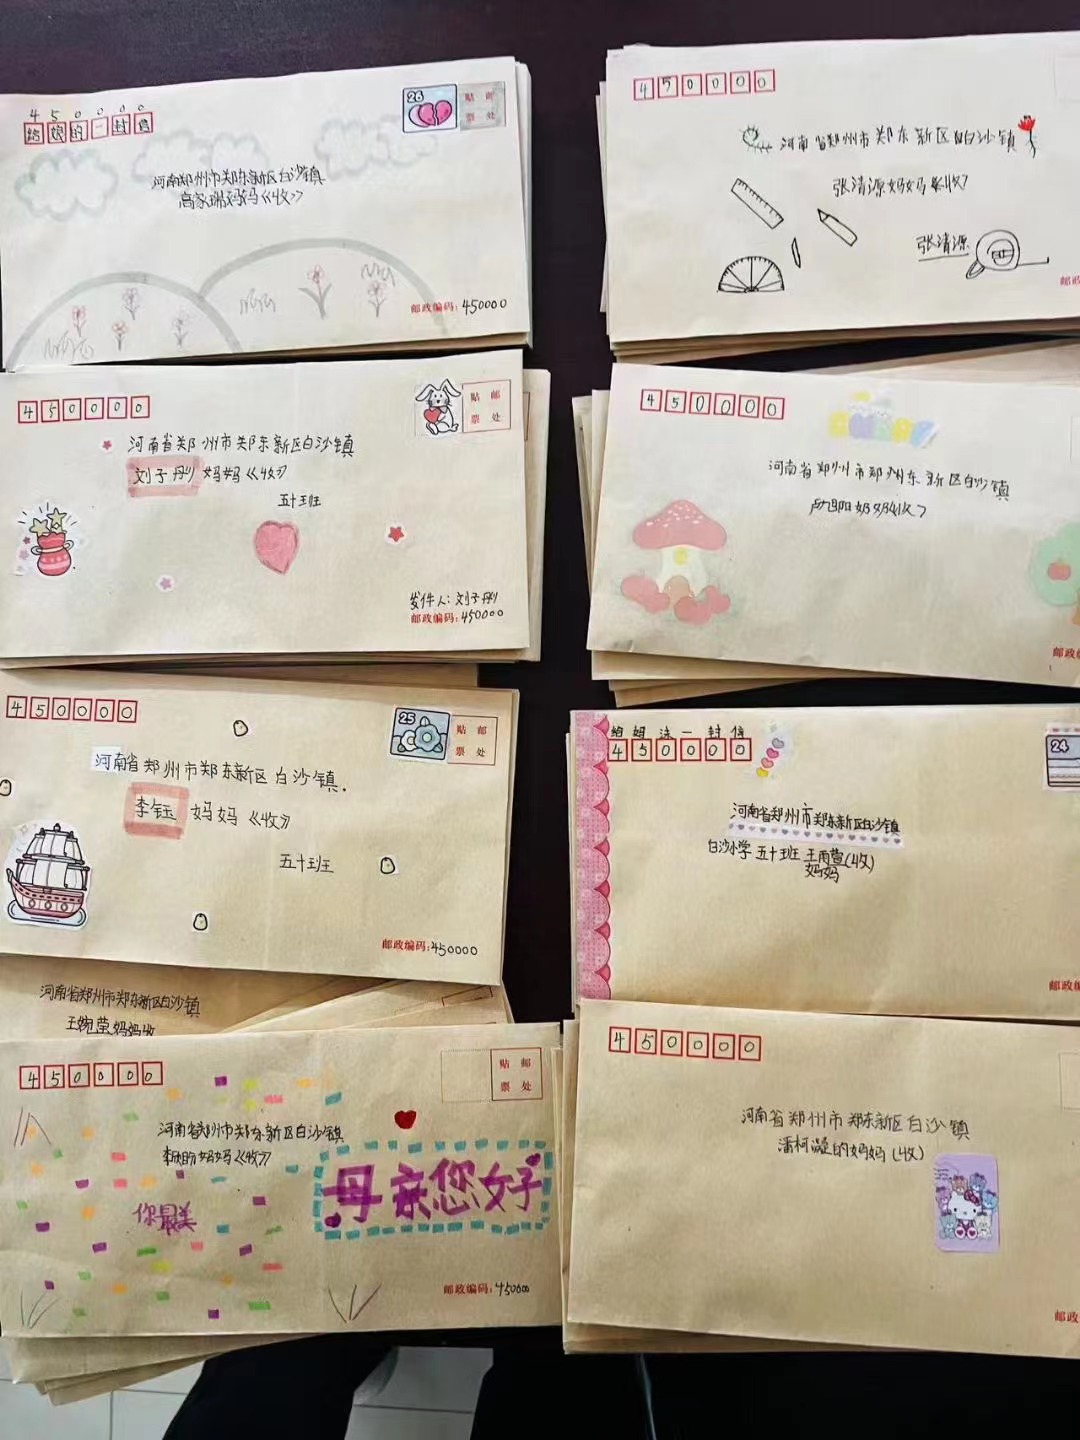 450000
给娘的一封信
26
贴 邮
票 处
河南郑州市郑东新区白沙镇
高家瑞妈妈《收》
邮政编码：450000
450000
河南省郑州市郑东新区白沙镇
张清源妈妈收
张清源
邮政
450000
贴 邮
票 处
河南省郑州市郑东新区白沙镇
刘子彤妈妈《收》
五十班
发件人：刘子彤
邮政编码：450000
450000
河南省郑州市郑州东新区白沙镇
妈妈收
邮政编
450000
25
贴 邮
票 处
河南省郑州市郑东新区白沙镇.
李钰 妈妈《收》
五十班
邮政编码：450000
给姐法一封信
450000
24
河南省郑州市郑东新区白沙镇
白沙小学五十班王雨萱(收)
妈妈
邮政编
河南省郑州市郑东新区白沙镇
王婉莹妈妈收
450000
贴 邮
票 处
河南省郑州市郑东新区白沙镇
李欣昀妈妈《收》
你最美
母亲您好
邮政编码：450000
450000
河南省郑州市郑东新区白沙镇
潘柯凝的妈妈(收)
邮政